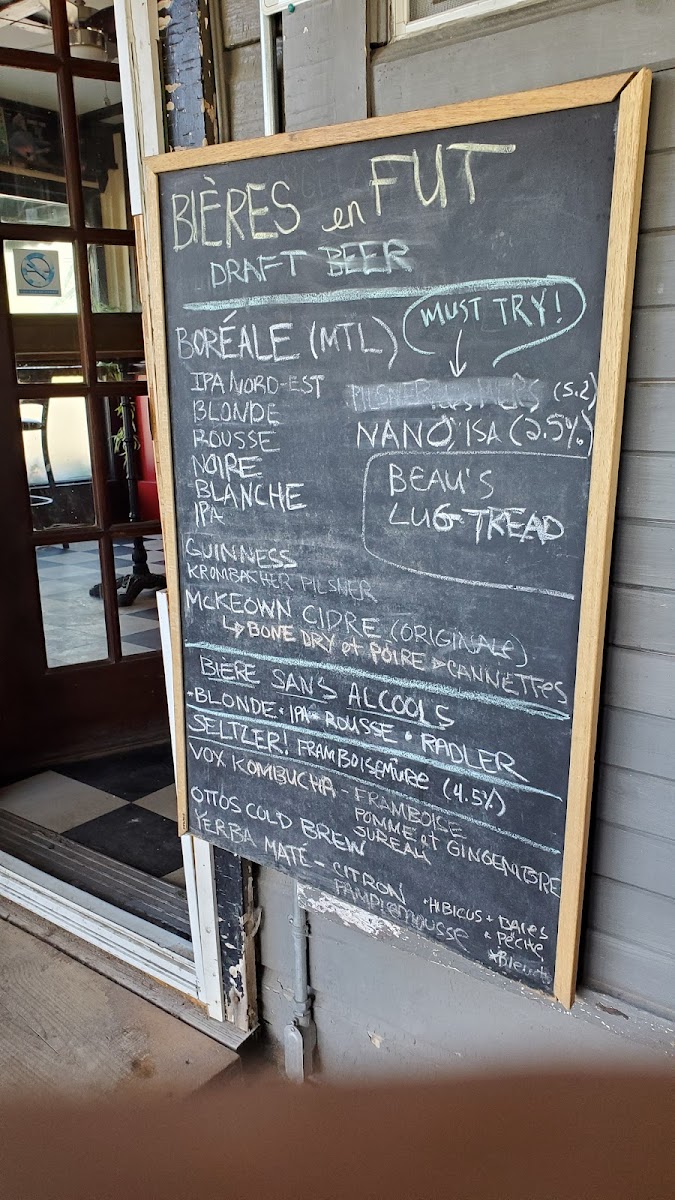 BIÈRES en FUT
DRAFT BEER
MUST TRY!
BORÉALE (MTL)
IPA NORD-EST
BLONDE
ROUSSE
NOIRE
BLANCHE
IPA
PILSNER MERS (5.2)
NANO ISA (2.5%)
BEAU'S
LUG-TREAD
GUINNESS
KROMBACHER PILSNER
MCKEOWN CIDRE (ORIGINALE)
↳ BONE DRY et POIRE ▹ CANNETTES
BIÈRE SANS ALCOOLS
•BLONDE • IPA • ROUSSE • RADLER
SELTZER! FRAMBOISEMÛRE (4.5%)
VOX KOMBUCHA - FRAMBOISE
POMME et GINGENBRE
SUREAU
OTTOS COLD BREW
YERBA MATÉ - CITRON
PAMPLEMOUSSE
•HIBICUS + BAIES
• PÊCHE